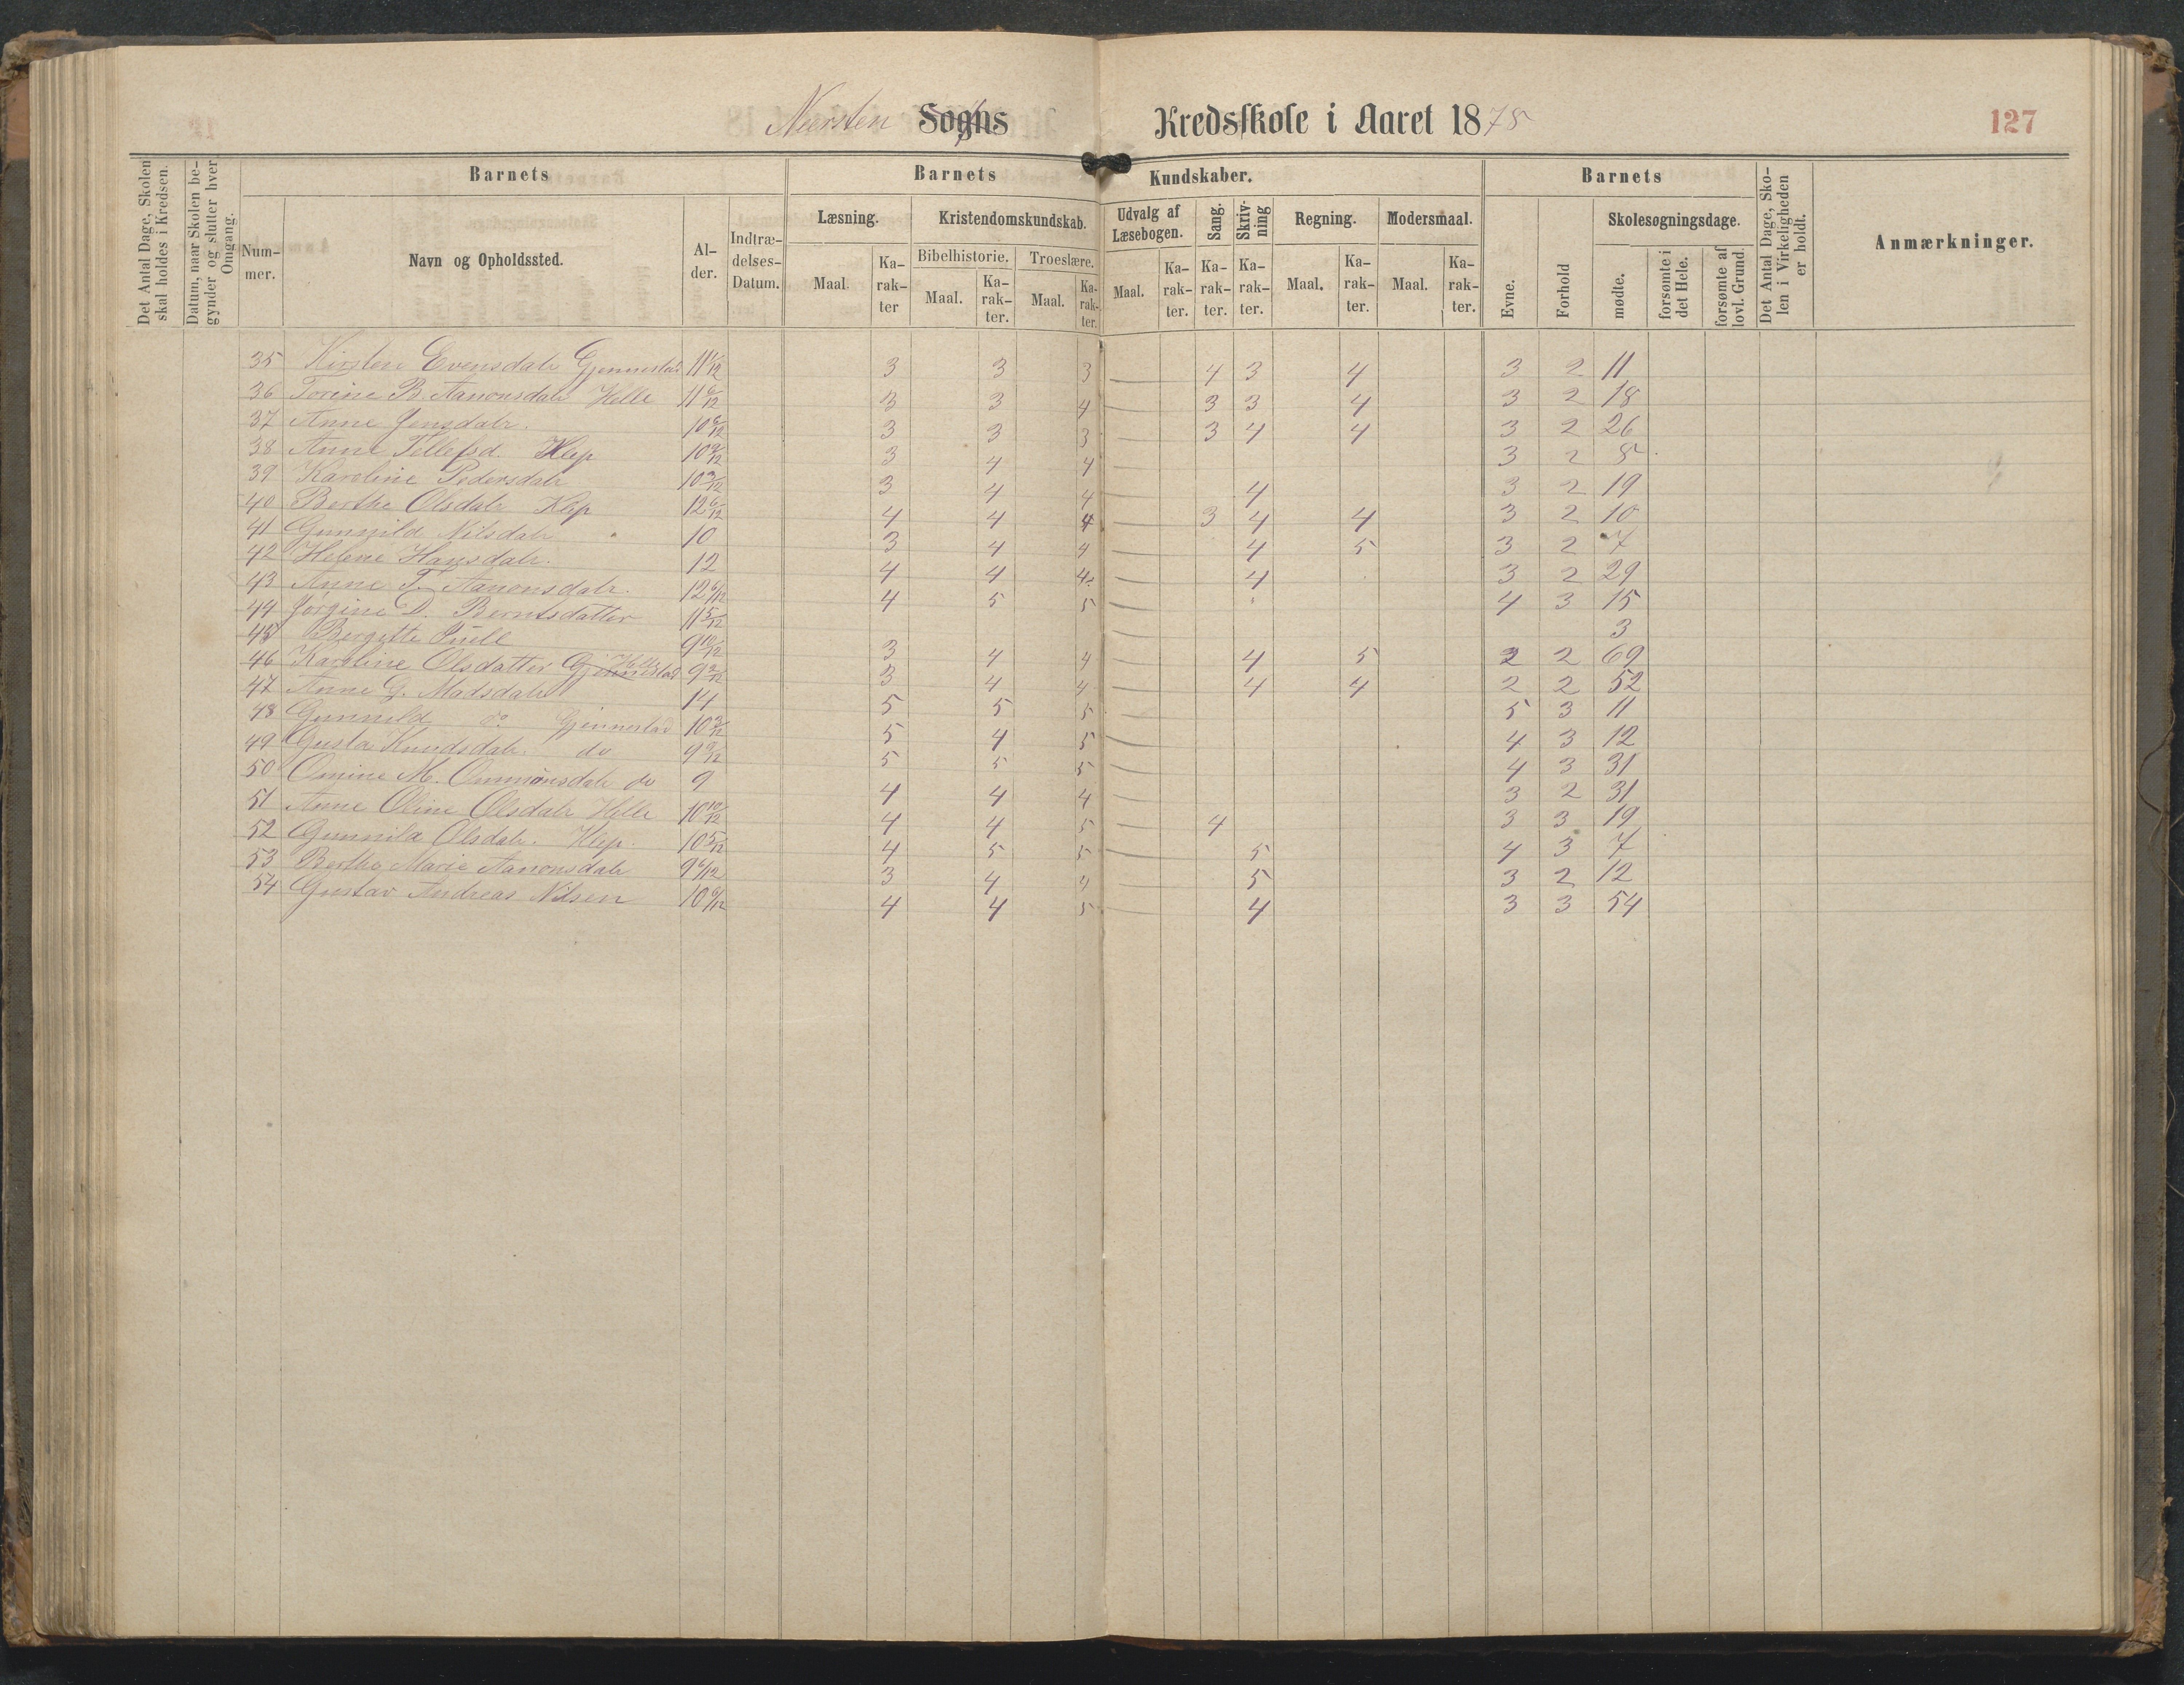 Sogns Kredsskole i Aaret 1878 127
Det Antal Dage, Skolen skal holdes i Kredsen.
Datum, naar Skolen begynder og slutter hver Omgang.
Barnets Barnets Kundskaber. Barnets
Det Antal Dage, Skolen i Virkeligheden er holdt.
Anmærkninger.
Nummer. Navn og Opholdssted. Alder. Indtrædelses-Datum.
Læsning. Kristendomskundskab. Udvalg af Læsebogen. Sang. Skrivning Regning. Modersmaal. Evne. Forhold Skolesøgningsdage.
Bibelhistorie. Troeslære.
Maal. Karakter Maal. Karakter. Maal. Karakter. Maal. Karakter. Karakter. Karakter. Maal. Karakter. Maal. Karakter. mødte. forsømte i det Hele. forsømte af lovl. Grund.
35 Kirsten Evensdatr Gjennestad 11 1/12 3 3 3 — 4 3 4 3 2 11
36 Torine B. Aanonsdatr Helle 11 6/12 3 3 4 — 3 3 4 3 2 18
37 Anne Jensdatr. 10 6/12 3 3 3 — 3 4 4 3 2 26
38 Anne Tellefsd. Klep 10 9/12 3 4 4 — 3 2 8
39 Karoline Pedersdatr 10 3/12 3 4 4 — 4 3 2 19
40 Berthe Olsdatr Klep 12 6/12 4 4 4 — 3 4 4 3 2 10
41 Gunnild Nilsdatr " 10 3 4 4 — 4 5 3 2 7
42 Helene Hansdatr. 12 4 4 4 — 4 3 2 29
43 Anne T. Aanonsdatr. 12 6/12 4 5 5 — 4 3 15
44 Jørgine D. Berntsdatter 11 5/12 — 3
45 Bergitte 9 10/12 3 4 4 — 4 5 2 2 69
46 Karoline Olsdatter Gjennestad Helle 9 2/12 3 4 4 — 4 4 2 2 52
47 Anne G. Madsdatr 14 5 5 5 — 5 3 11
48 Gunnild do Gjennestad 10 3/12 5 4 5 — 4 3 12
49 Gusta Knudsdatr. do 9 9/12 5 5 5 — 4 3 31
50 Omine M. Ommonsdatr do 9 4 4 4 — 3 2 31
51 Anne Oline Olsdatr Helle 10 10/12 4 4 5 — 4 3 3 19
52 Gunnild Olsdatr. Klep. 10 5/12 4 5 5 — 5 4 3 7
53 Berthe Marie Aanonsdatr 9 6/12 3 4 4 — 5 3 2 12
54 Gustav Andreas Nilsen 10 6/12 4 4 5 — 4 3 3 54